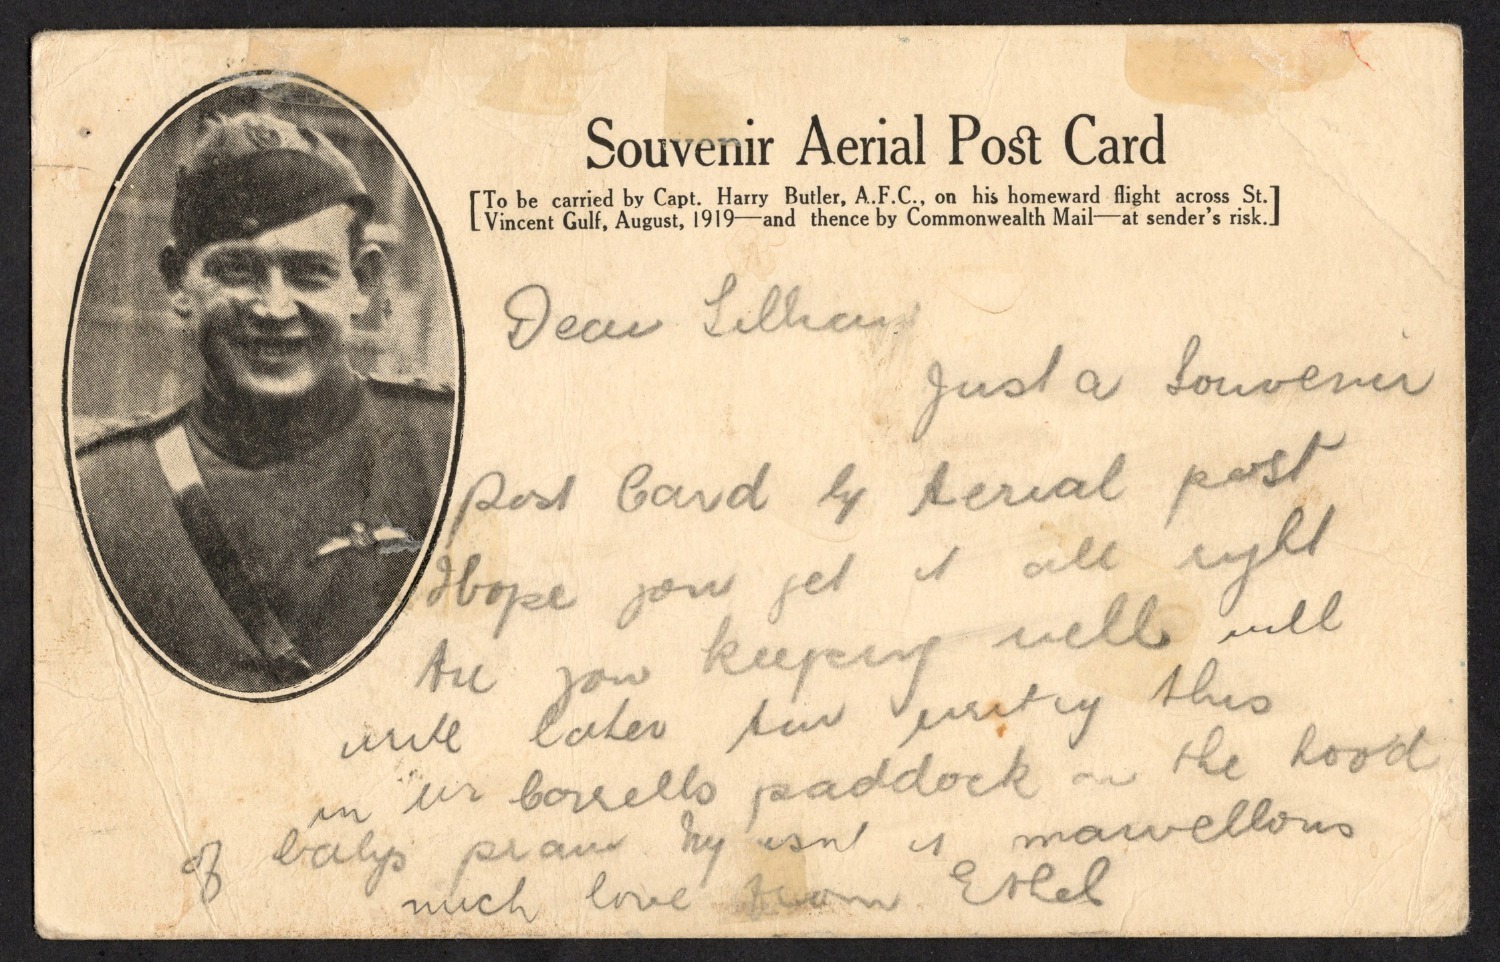 Souvenir Aerial Post Card
[To be carried by Capt. Harry Butler, A.F.C., on his homeward flight across St.
Vincent Gulf, August, 1919—and thence by Commonwealth Mail—at sender's risk.]
Dear Lillian
Just a Souvenir
post Card by Aerial post
I hope you get it all right
Are you keeping well will
write later Am writing this
in Mr Corrells paddock on the hood
of babys pram My isnt it marvellous
much love from Ethel